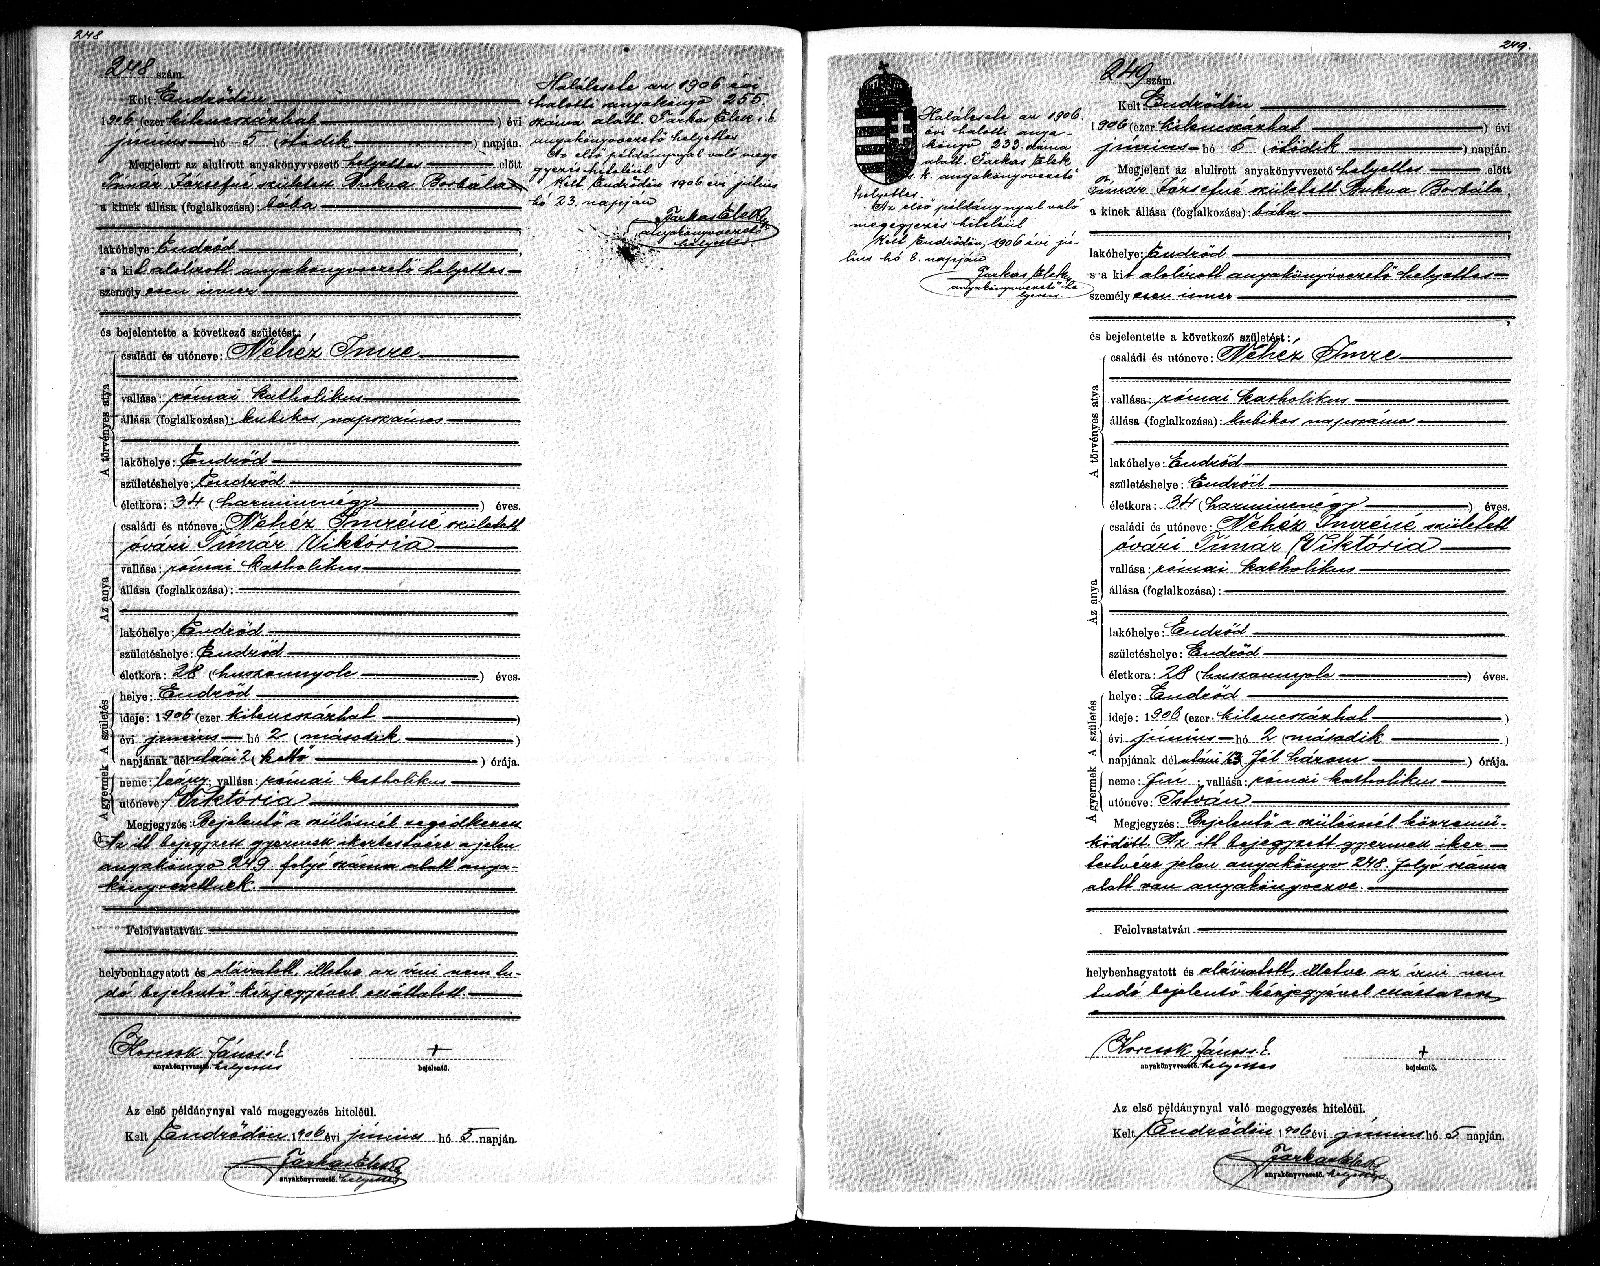 248
248 szám.
Kelt: Endrődön
1906 (ezer kilencszázhat) évi
június hó 5 (ötödik) napján.
Megjelent az alulirott anyakönyvvezető helyettes előtt
Tímár Józsefné született Dukva Borbála
a kinek állása (foglalkozása): bába
lakóhelye: Endrőd
s a kit alólírott anyakönyvvezető helyettes
személyesen ismer
és bejelentette a következő születést:
A törvényes atya
családi és utóneve: Néhéz Imre
vallása: római katholikus
állása (foglalkozása): kubikos, napszámos
lakóhelye: Endrőd
születéshelye: Endrőd
életkora: 34 (harmincnégy) éves.
Az anya
családi és utóneve: Néhéz Imréné született
óvári Tímár Viktória
vallása: római katholikus
állása (foglalkozása):
lakóhelye: Endrőd
születéshelye: Endrőd
életkora: 28 (huszonnyolc) éves.
A születés
helye: Endrőd
ideje: 1906 (ezer kilencszázhat)
évi június hó 2 (második)
napjának délutáni 2 (kettő) órája.
A gyermek
neme: leány; vallása: római katholikus
utóneve: Viktória
Megjegyzés: Bejelentő a szülésnél segédkezett
Az itt bejegyzett gyermek ikertestvére a jelen
anyakönyv 249 folyó száma alatt anya-
könyveztetett.
Felolvastatván
helybenhagyatott és aláiratott, illetve az írni nem tu-
dó bejelentő kézjegyével ellátatott.
Korcsok János
anyakönyvvezető helyettes
+
bejelentő.
Az első példánynyal való megegyezés hiteléül.
Kelt Endrődön 1906 évi június hó 5 napján.
Farkas Elek
anyakönyvvezető. helyettes
Halálesete az 1906 évi
halotti anyakönyv 255.
száma alatt. Farkas Elek s. k.
anyakönyvvezető helyettes
Az első példánynyal való meg-
gyezés hiteléül
Kelt Endrődön 1906 évi július
hó 23. napján
Farkas Elek
anyakönyvvezető
helyettes
249.
249 szám.
Kelt: Endrődön
1906 (ezer kilencszázhat) évi
június hó 5 (ötödik) napján.
Megjelent az alulirott anyakönyvvezető helyettes előtt
Tímár Józsefné született Dukva Borbála
a kinek állása (foglalkozása): bába
lakóhelye: Endrőd
s a kit alólírott anyakönyvvezető helyettes
személyesen ismer
és bejelentette a következő születést:
A törvényes atya
családi és utóneve: Néhéz Imre
vallása: római katholikus
állása (foglalkozása): kubikos napszámos
lakóhelye: Endrőd
születéshelye: Endrőd
életkora: 34 (harmincnégy) éves.
Az anya
családi és utóneve: Néhéz Imréné született
óvári Tímár Viktória
vallása: római katholikus
állása (foglalkozása):
lakóhelye: Endrőd
születéshelye: Endrőd
életkora: 28 (huszonnyolc) éves.
A születés
helye: Endrőd
ideje: 1906 (ezer kilencszázhat)
évi június hó 2 (második)
napjának délutáni ½3 fél három) órája.
A gyermek
neme: fiu; vallása: római katholikus
utóneve: István
Megjegyzés: Bejelentő a szülésnél közremű-
ködött. Az itt bejegyzett gyermek iker-
testvére jelen anyakönyv 248. folyó száma
alatt van anyakönyvezve.
Felolvastatván
helybenhagyatott és aláiratott, illetve az írni nem
tudó bejelentő kézjegyével ellátatott
Korcsok János
anyakönyvvezető. helyettes
+
bejelentő.
Az első példánynyal való megegyezés hiteléül.
Kelt Endrődön 1906 évi június hó 5 napján.
Farkas Elek
anyakönyvvezető. helyettes
Halálesete az 1906.
évi halotti anya-
könyv 233 száma
alatt. Farkas Elek
s. k. anyakönyvvezető
helyettes.
Az első példánynyal való
megegyezés hiteléül
Kelt Endrődön, 1906 évi jú-
lius hó 8. napján
Farkas Elek
anyakönyvvezető he-
lyettes